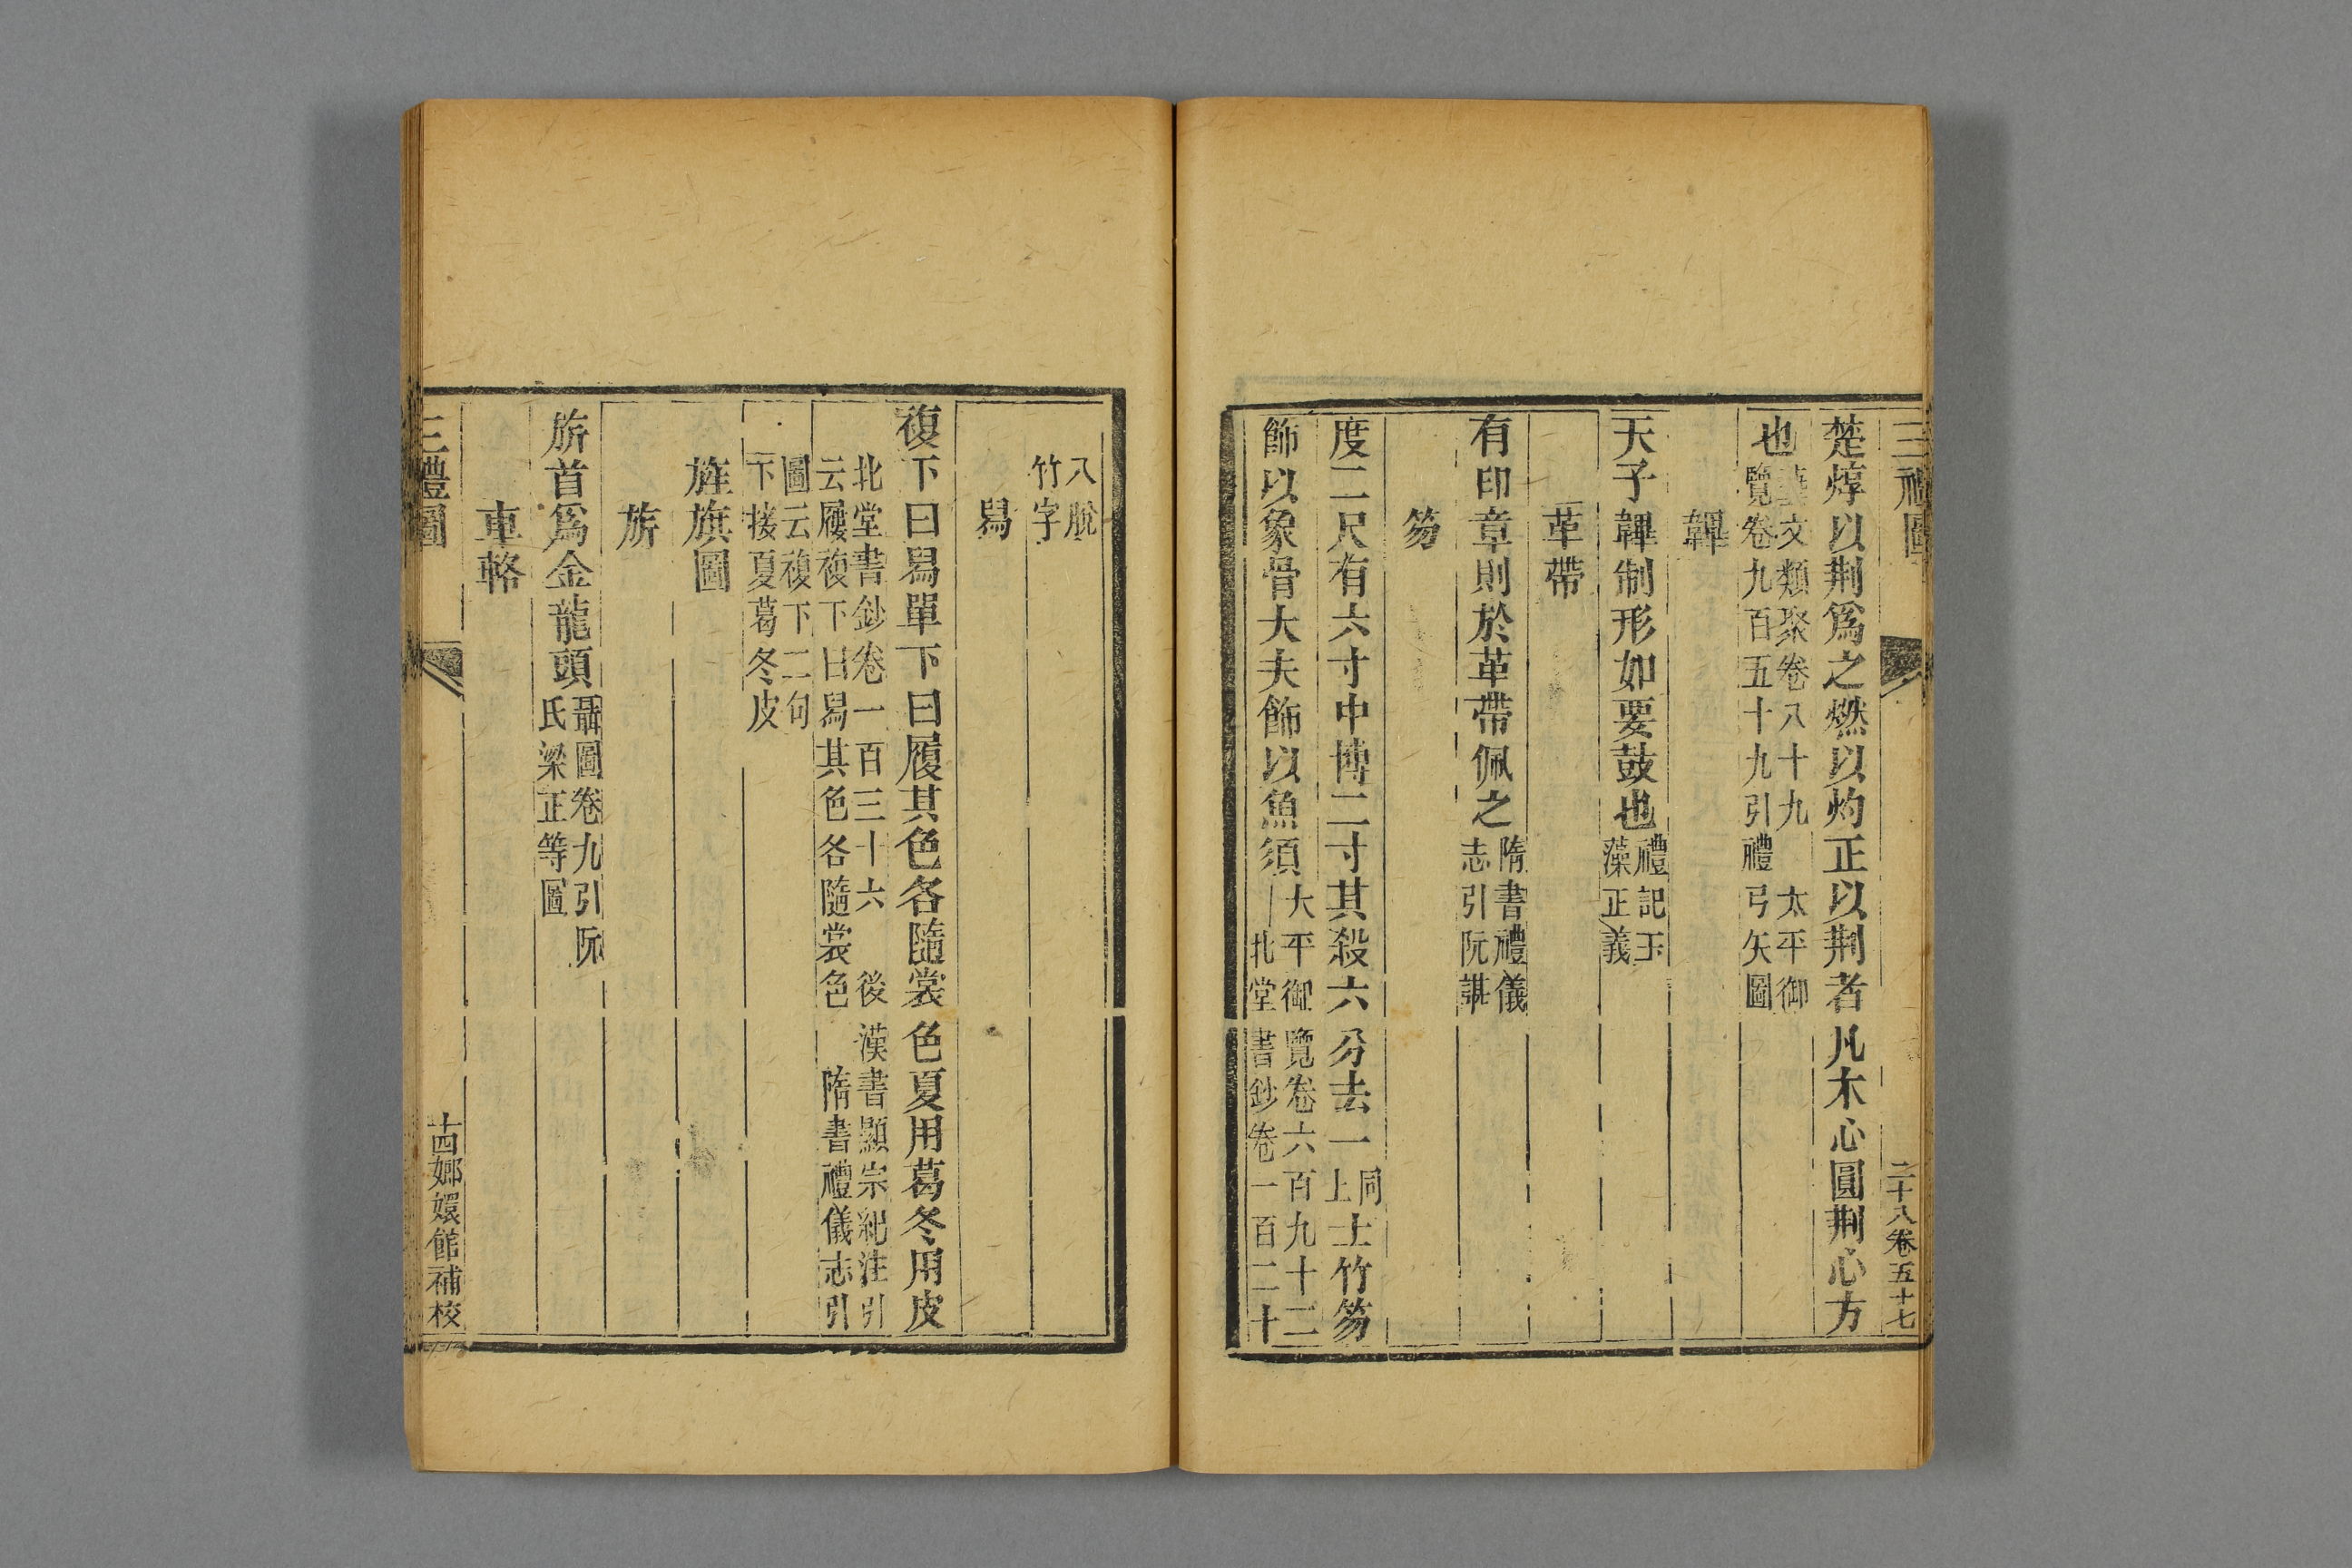 三禮圖 二十八卷五十七
楚焞以荆爲之燃以灼正以荆者凡木心圓荆心方
也 藝文類聚卷八十九 太平御
覽卷九百五十九引禮弓矢圖
韠
天子韠制形如要鼓也 禮記玉
藻正義
革帶
有印章則於革帶佩之 隋書禮儀
志引阮諶
笏
度二尺有六寸中博二寸其殺六分去一 同
上 士竹笏
飾以象骨大夫飾以魚須 大平御覽卷六百九十二
北堂書鈔卷一百二十
八脫
竹字
舄
複下曰舄單下曰履其色各隨裳色夏用葛冬用皮
北堂書鈔卷一百三十六 後漢書顯宗紀注引
云履複下曰舄其色各隨裳色 隋書禮儀志引
圖云複下二句
下接夏葛冬皮
旌旗圖
旂
旂首爲金龍頭 聶圖卷九引阮
氏梁正等圖
車輅
三禮圖 十四 嫏嬛館補校